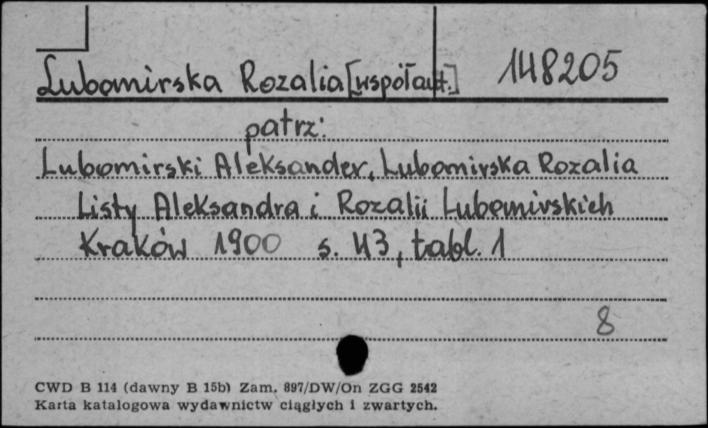 Lubomirska Rozalia [współaut.] 148205
patrz:
Lubomirski Aleksander, Lubomirska Rozalia
Listy Aleksandra i Rozalii Lubomirskich
Kraków 1900 s. 43, tabl. 1
8
CWD B 114 (dawny B 15b) Zam. 897/DW/On ZGG 2542
Karta katalogowa wydawnictw ciągłych i zwartych.